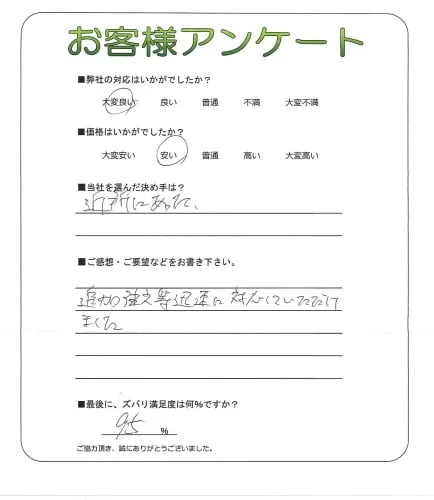 お客様アンケート
■弊社の対応はいかがでしたか?
大変良い 良い 普通 不満 大変不満
■価格はいかがでしたか?
大変安い 安い 普通 高い 大変高い
■当社を選んだ決め手は?
近所にあった、
■ご感想・ご要望などをお書き下さい。
追加注文等迅速に対応していただけ
ました
■最後に、ズバリ満足度は何%ですか?
95 %
ご協力頂き、誠にありがとうございました。